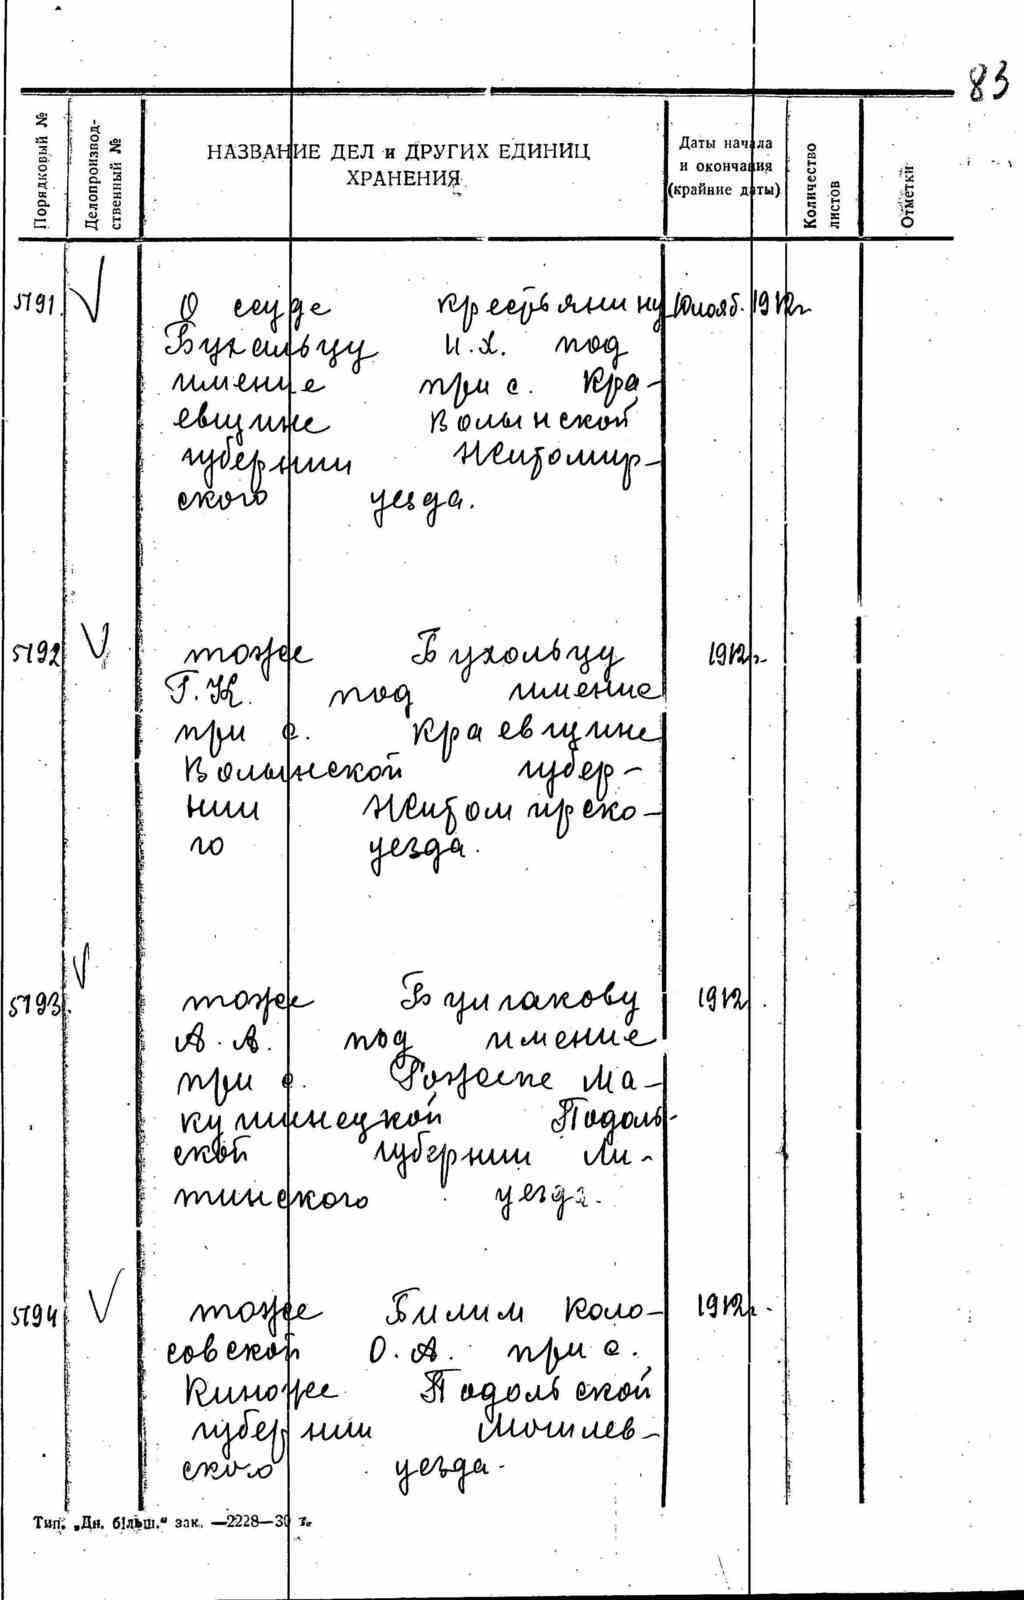 83
Порядковый №
Делопроизвод-
ственный №
НАЗВАНИЕ ДЕЛ и ДРУГИХ ЕДИНИЦ
ХРАНЕНИЯ
Даты начала
и окончания
(крайние даты)
Количество
листов
Отметки
5791. О ссуде крестьянину 1912г.
Бухгольцу И.Х. под
имение при с. Кра-
евщине Волынской
губернии Житомир-
ского уезда.
5792 тоже Бухольцу 1912г.
Г.К. под имение
при с. Краевщине
Волынской губер-
нии Житомирско-
го уезда.
5793. тоже Булгакову 1912
А.А. под имение
при с. Ма-
кулинецкой Подоль-
ской губернии Ли-
тинского уезда.
5794 тоже Билим Коло- 1912г.
совской О.А. при с.
Киноже Подольской
губернии Могилев-
ского уезда.
Тип. „Дн. більш.“ зак. —2228—30 г.